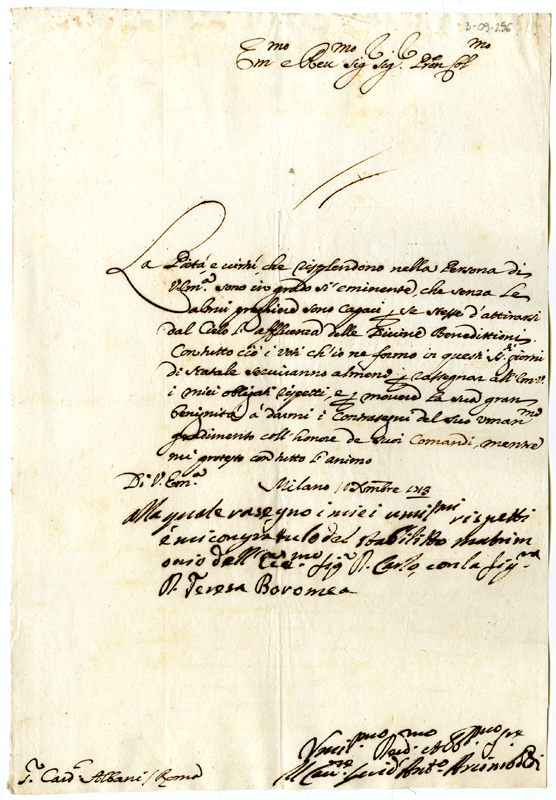 3-09-256
Em.mo e Reu.mo Sig. Sig. Pron Col.mo
La Pietà, e uirtù, che risplendono nella Persona di
V. Em.a sono in grado sì eminente, che senza le
altrui preghiere sono capaci p se stesse d'attirarsi
dal Cielo l'affluenza delle Diuine Benedittioni.
Contutto ciò i Voti ch'io ne formo in questi S.ti giorni
di Natale seruiranno almeno p rassegnar all' Em. V.
i miei obligati rispetti, e p mouere la sua gran
benignità à darmi i Contrasegni del suo uman.mo
gradimento coll'honore de suoi Comandi, mentre
mi protesto con tutto l'animo
Di V. Em.a Milano Xmbre 1713
alla quale rasegno i miei umil.mi rispetti
è mi congratulo dal stabilitto matrim
onio dell' Ecc.mo Sig.r D. Carlo, con la Sig.ra
D. Teresa Boromea
Vmil.mo Deu.mo Obb.mo Ser.re
S.r Card. Albani / Roma
Ant.o